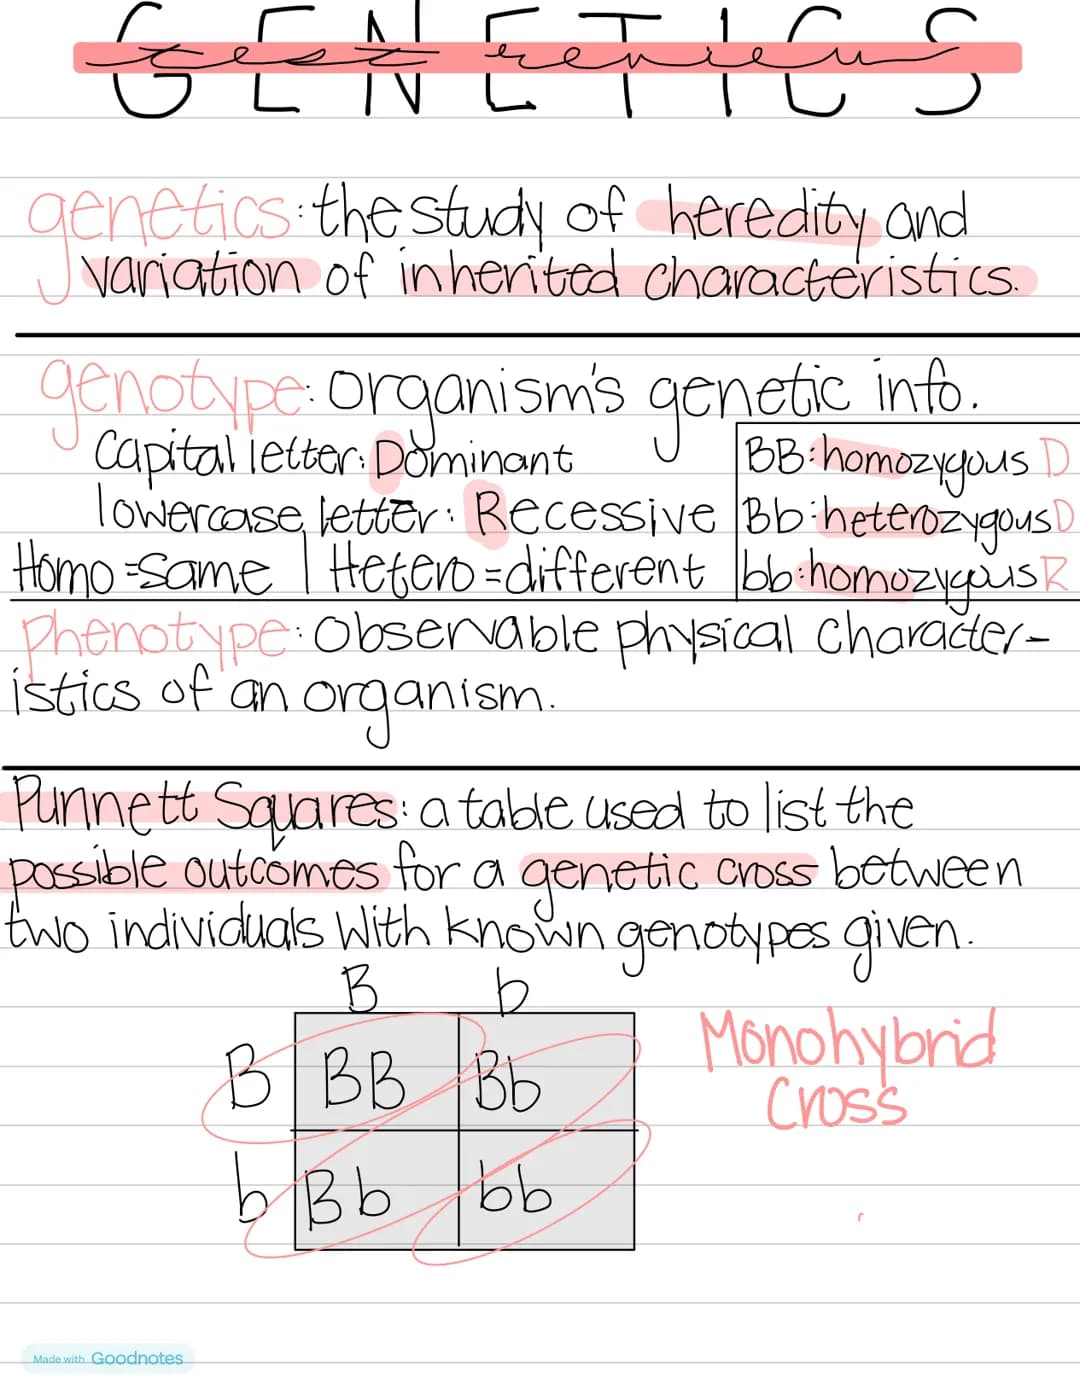 GENETICS
test review
genetics: the study of heredity and
variation of inherited characteristics.
genotype: organism's genetic info.
Capital letter: Dominant
lowercase letter: Recessive
Homo = Same | Hetero = different
BB: homozygous D
Bb: heterozygous D
bb: homozygous R
Phenotype: Observable physical character-
istics of an organism.
Punnett Squares: a table used to list the
possible outcomes for a genetic cross between
two individuals With known genotypes given.
B b
B BB Bb
b Bb bb
Monohybrid
Cross
Made with Goodnotes